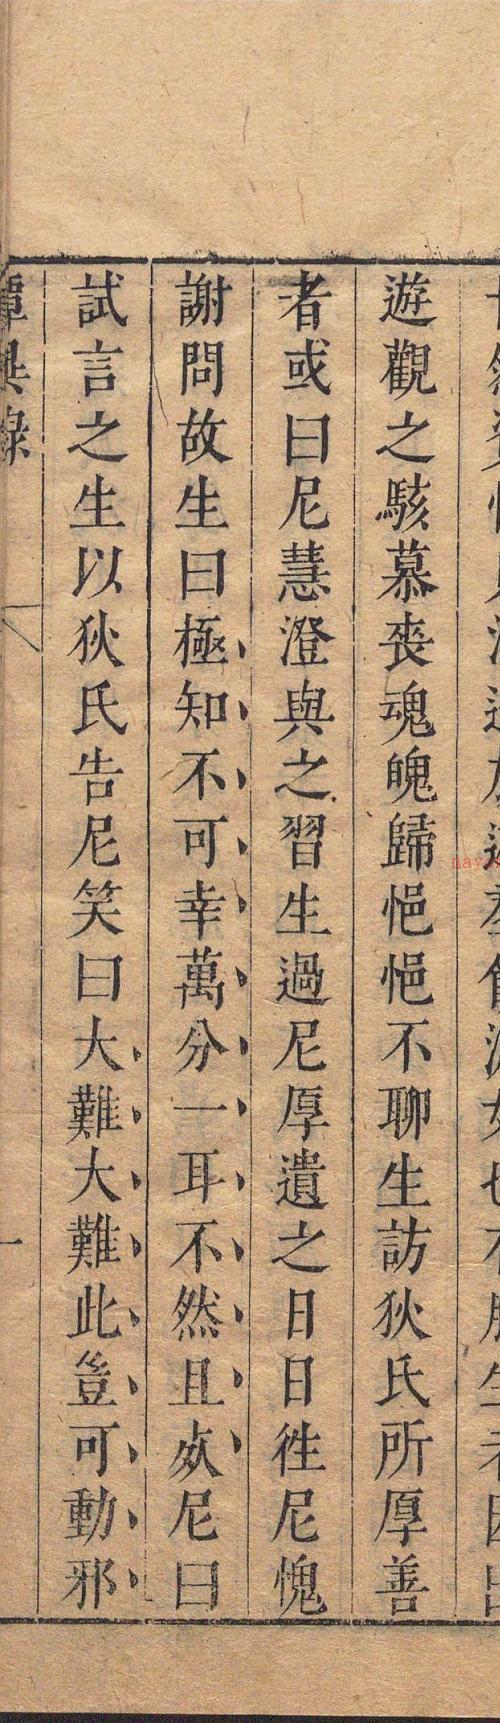 遊觀之駭慕喪魂魄歸悒悒不聊生訪狄氏所厚善
者或曰尼慧澄與之習生過尼厚遺之日日徃尼愧
謝問故生曰極知不可幸萬分一耳不然且㱡尼曰
試言之生以狄氏告尼笑曰大難大難此豈可動邪